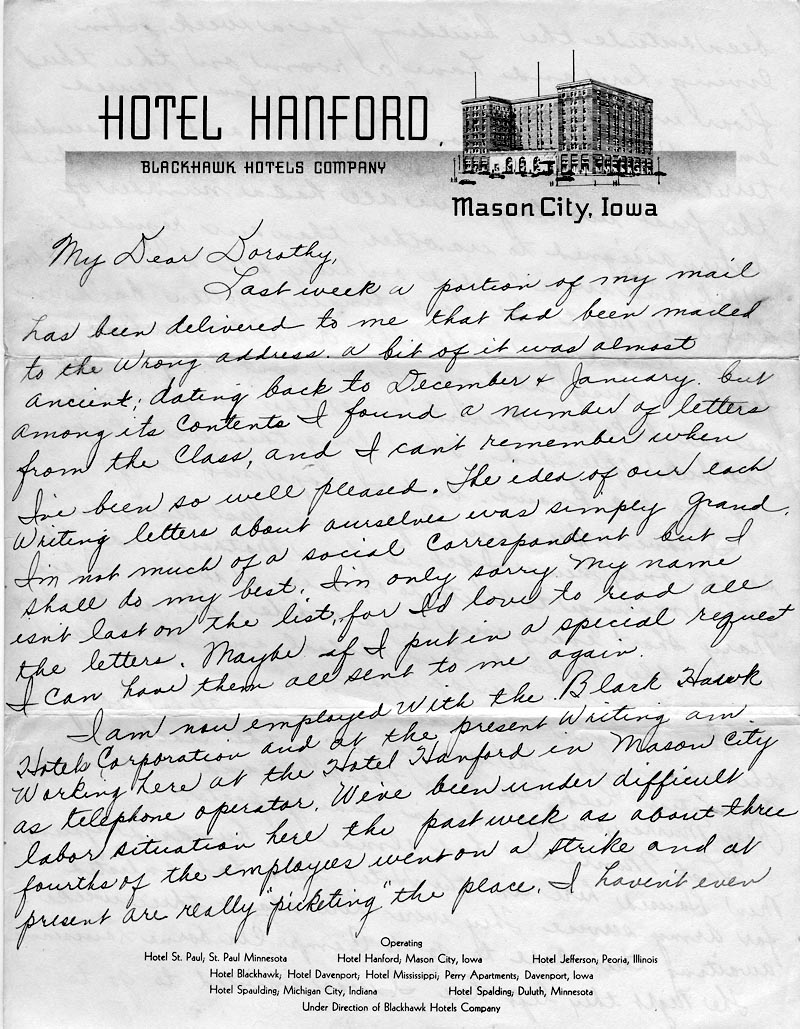 HOTEL HANFORD
BLACKHAWK HOTELS COMPANY
Mason City, Iowa
My Dear Dorothy,
Last week a portion of my mail
has been delivered to me that had been mailed
to the wrong address. A bit of it was almost
ancient; dating back to December & January. but
among its contents I found a number of letters
from the Class, and I can't remember when
I've been so well pleased. The idea of our each
writing letters about ourselves was simply grand.
I'm not much of a social correspondent but I
shall do my best. I'm only sorry my name
isn't last on the list, for I'd love to read all
the letters. Maybe if I put in a special request
I can have them all sent to me again.
I am now employed with the Black Hawk
Hotels Corporation and at the present writing am
working here at the Hotel Hanford in Mason City
as telephone operator. We've been under difficult
labor situation here the past week as about three
fourths of the employees went on a strike and at
present are really "picketing" the place. I haven't even
Operating
Hotel St. Paul; St. Paul Minnesota Hotel Hanford; Mason City, Iowa Hotel Jefferson; Peoria, Illinois
Hotel Blackhawk; Hotel Davenport; Hotel Mississippi; Perry Apartments; Davenport, Iowa
Hotel Spaulding; Michigan City, Indiana Hotel Spalding; Duluth, Minnesota
Under Direction of Blackhawk Hotels Company